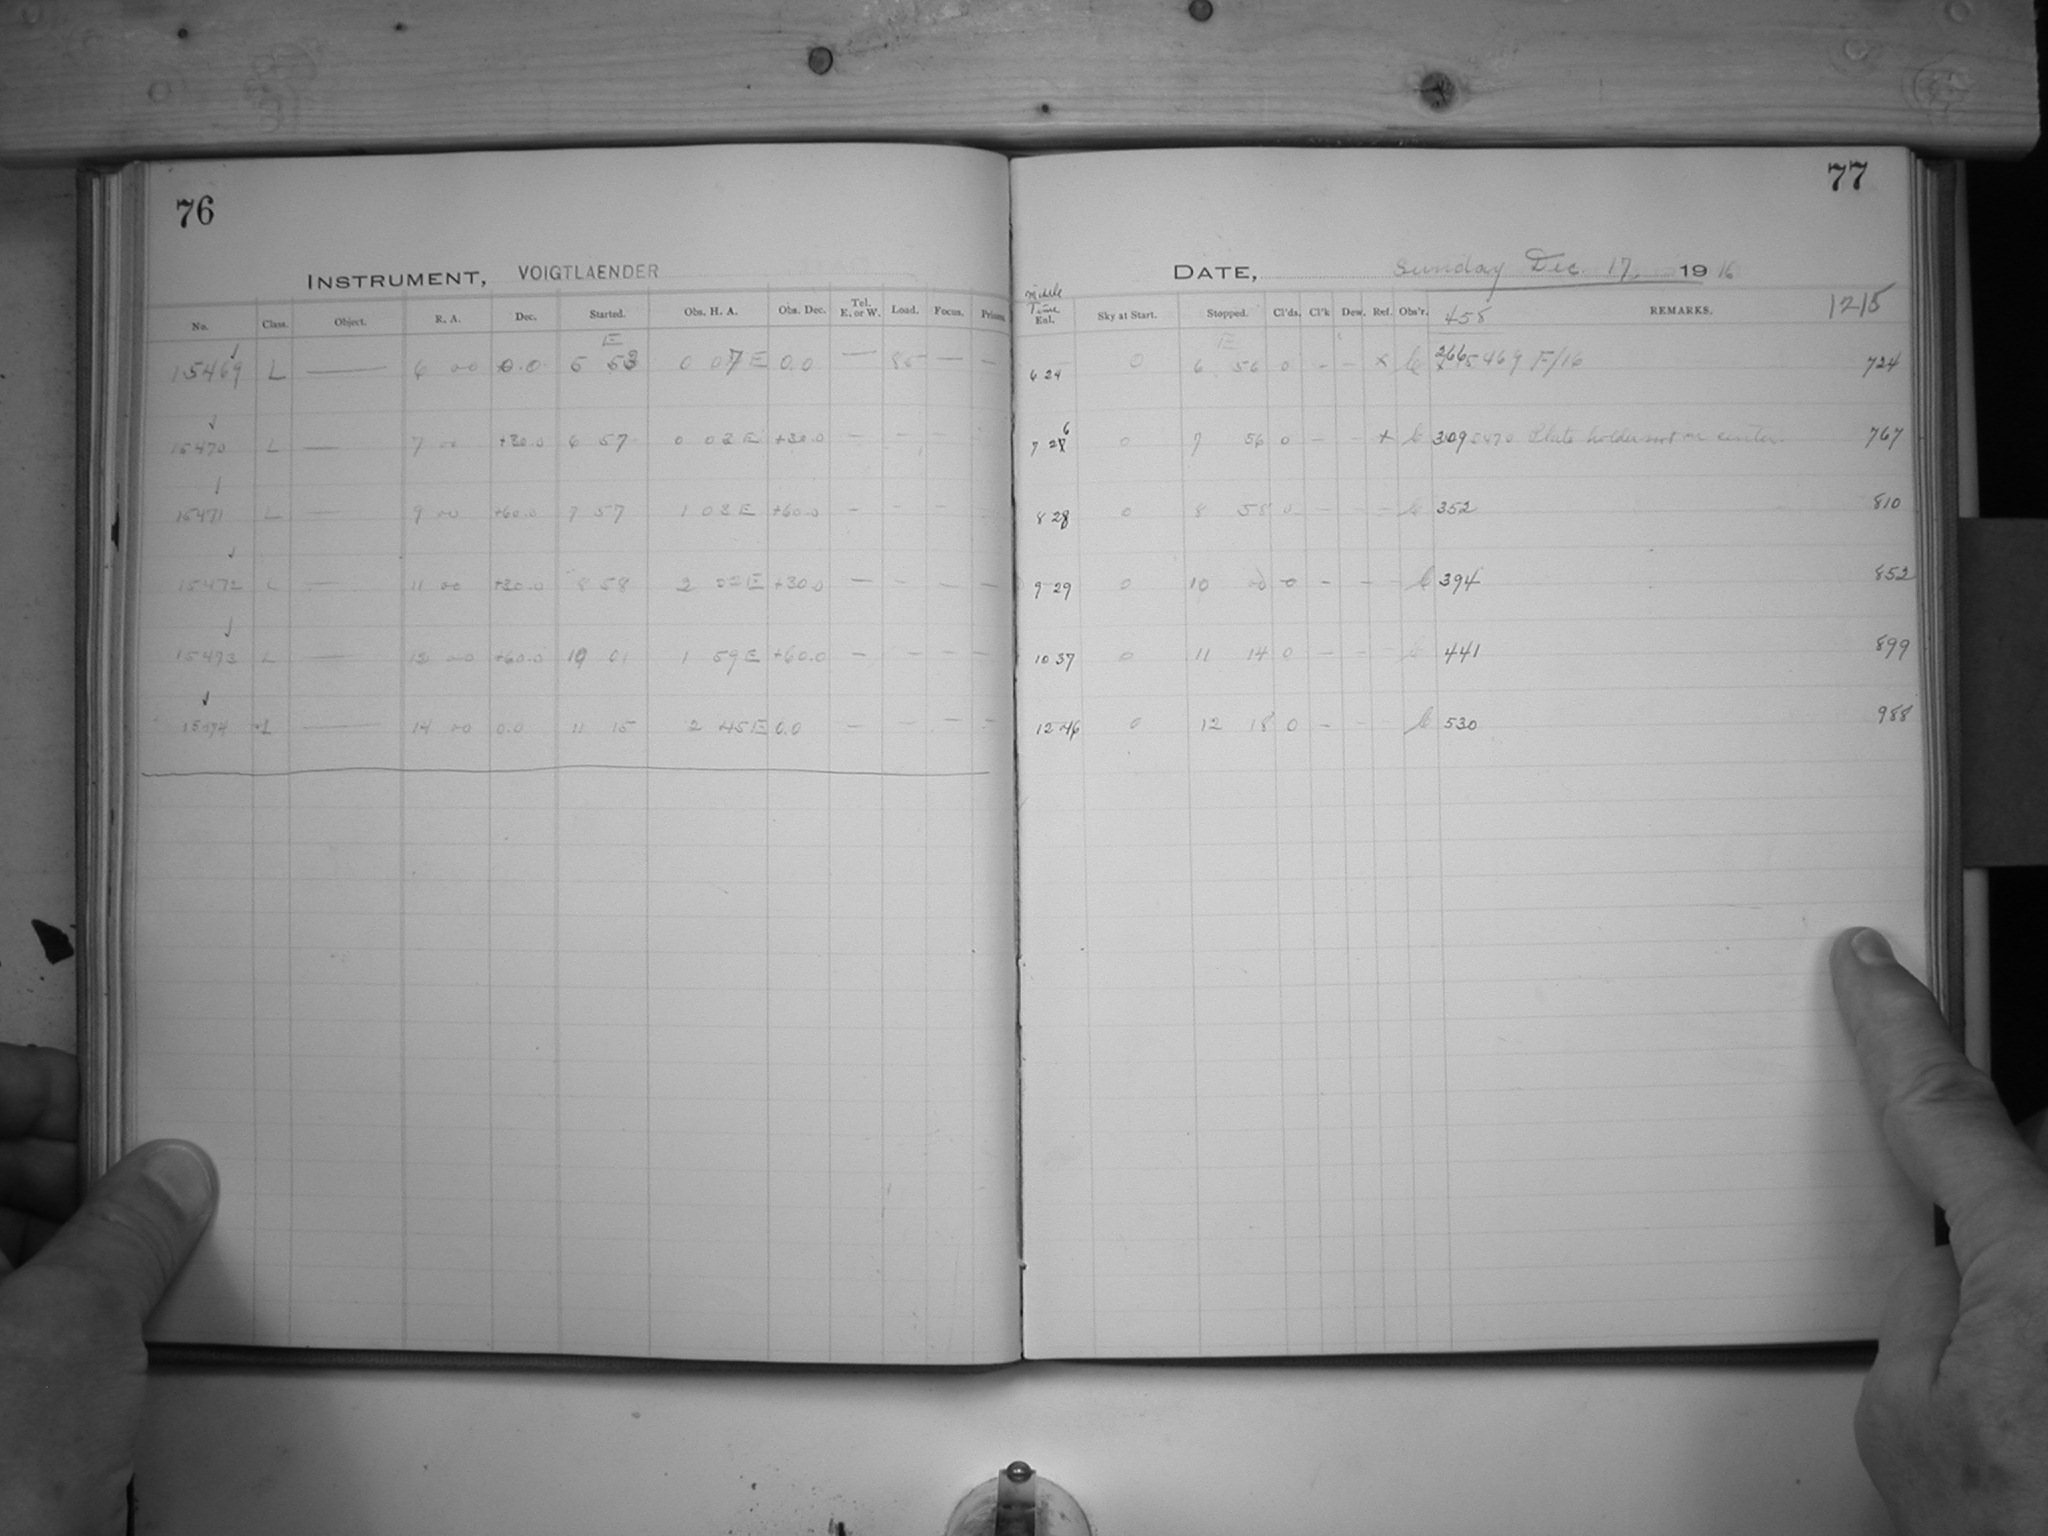 76
INSTRUMENT, VOIGTLAENDER
No. Class. Object. R. A. Dec. Started. Obs. H. A. Obs. Dec. Tel. E. or W. Load. Focus. Prisms.
E
15469 L — 6 00 0.0 5 53 0 07 E 0.0 — 85 — —
15470 L — 7 00 +30.0 6 57 0 03 E +30.0 — - - -
15471 L — 9 00 +60.0 7 57 1 03 E +60.0 — - -
15472 L — 11 00 +30.0 8 58 2 02 E +30.0 — - — —
15473 L — 12 00 +60.0 10 01 1 59 E +60.0 — — — —
15474 L — 14 00 0.0 11 15 2 45 E 0.0 — - - —
77
DATE, Sunday Dec. 17, 1916
Middle Time
Eal. Sky at Start. Stopped. Cl'ds. Cl'k Dew. Ref. Obs'r. 458 REMARKS. 1215
E
6 24 0 6 56 0 - - x 266 5469 F/16 724
7 26 0 7 56 0 - - x 309 5470 Plate holder not on center. 767
8 28 0 8 58 0 - - - 352 810
9 29 0 10 00 0 - - - 394 852
10 37 0 11 14 0 - - - 441 899
12 46 0 12 18 0 - - - 530 988